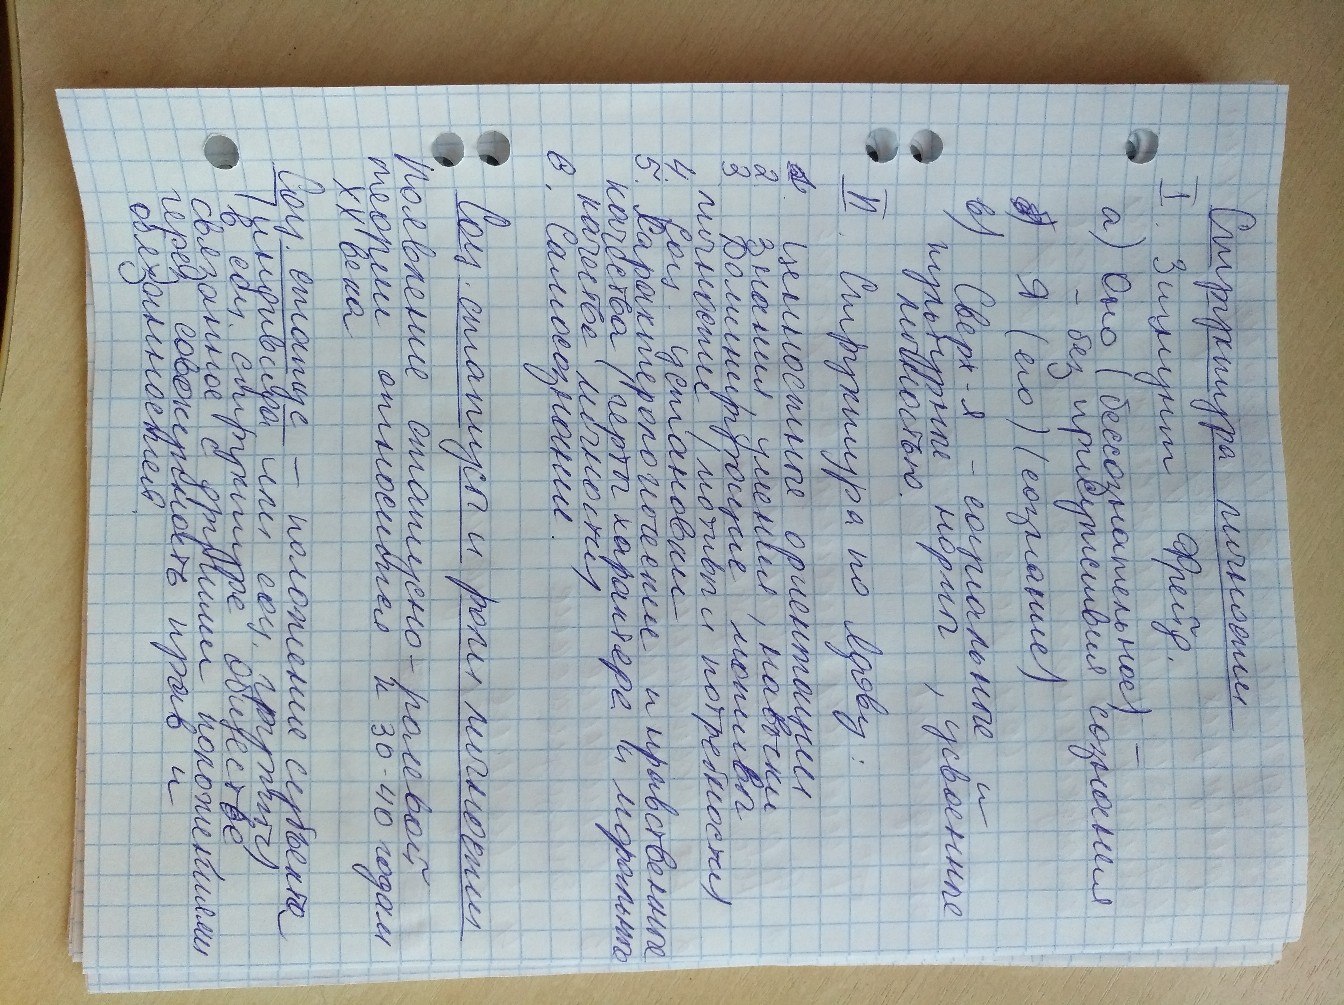 Структура личности
I. Зигмунт Фрейд.
а) Оно (бессознательное) –
– без присутствия сознания
б) Я (его) (сознание)
в) Сверх-я – социальные и
культурные нормы, усвоенные
личностью.
II. Структура по Ядову:
1. Ценностные ориентации
2. Знания, умения, навыки
3 Доминирующие мотивы
личности (мотивы и потребности)
4. Соц. установки
5. Характерологические и нравственные
качества (черты характера и моральные
качества личности)
6. Самосознание.
Соц. статусы и роли личности
Появление статусно-ролевой
теории относится к 30-40 годам
XX века
Соц. статус – положение субъекта
(индивида или соц. группы)
в соц. структуре общества,
связанное с другими положениями
через совокупность прав и
обязанностей.